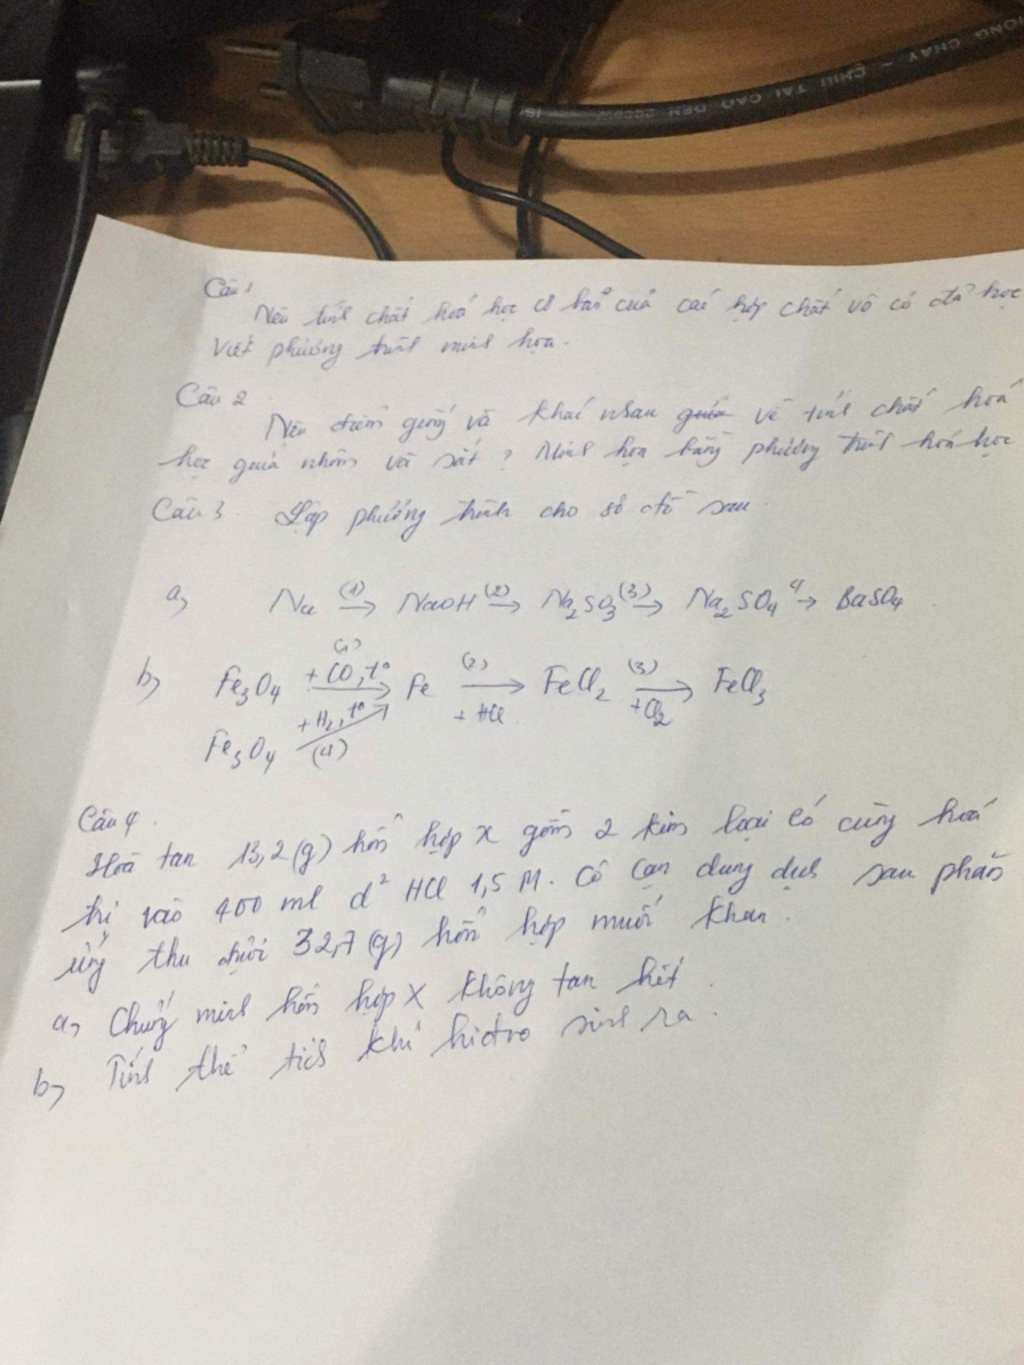 CHỊU TẢI CAO
Câu 1
Nêu tính chất hoá học cơ bản của các hợp chất vô cơ đã học
Viết phương trình minh họa.
Câu 2
Nêu điểm giống và khác nhau giữa về tính chất hoá
học giữa nhôm và sắt ? Minh họa bằng phương trình hoá học
Câu 3 Lập phương trình cho sơ đồ sau
a, Na (1)→ NaOH (2)→ Na2SO3 (3)→ Na2SO4 4→ BaSO4
b, Fe3O4 (1) + CO, t° → Fe (2) + HCl → FeCl2 (3) + Cl2 → FeCl3
Fe3O4 + H2, t° (4)
Câu 4.
Hoà tan 13,2 (g) hỗn hợp x gồm 2 kim loại có cùng hoá
trị vào 400 ml d² HCl 1,5 M. Cô cạn dung dịch sau phản
ứng thu được 32,7 (g) hỗn hợp muối khan.
a, Chứng minh hỗn hợp X không tan hết.
b, Tính thể tích khí hidro sinh ra.